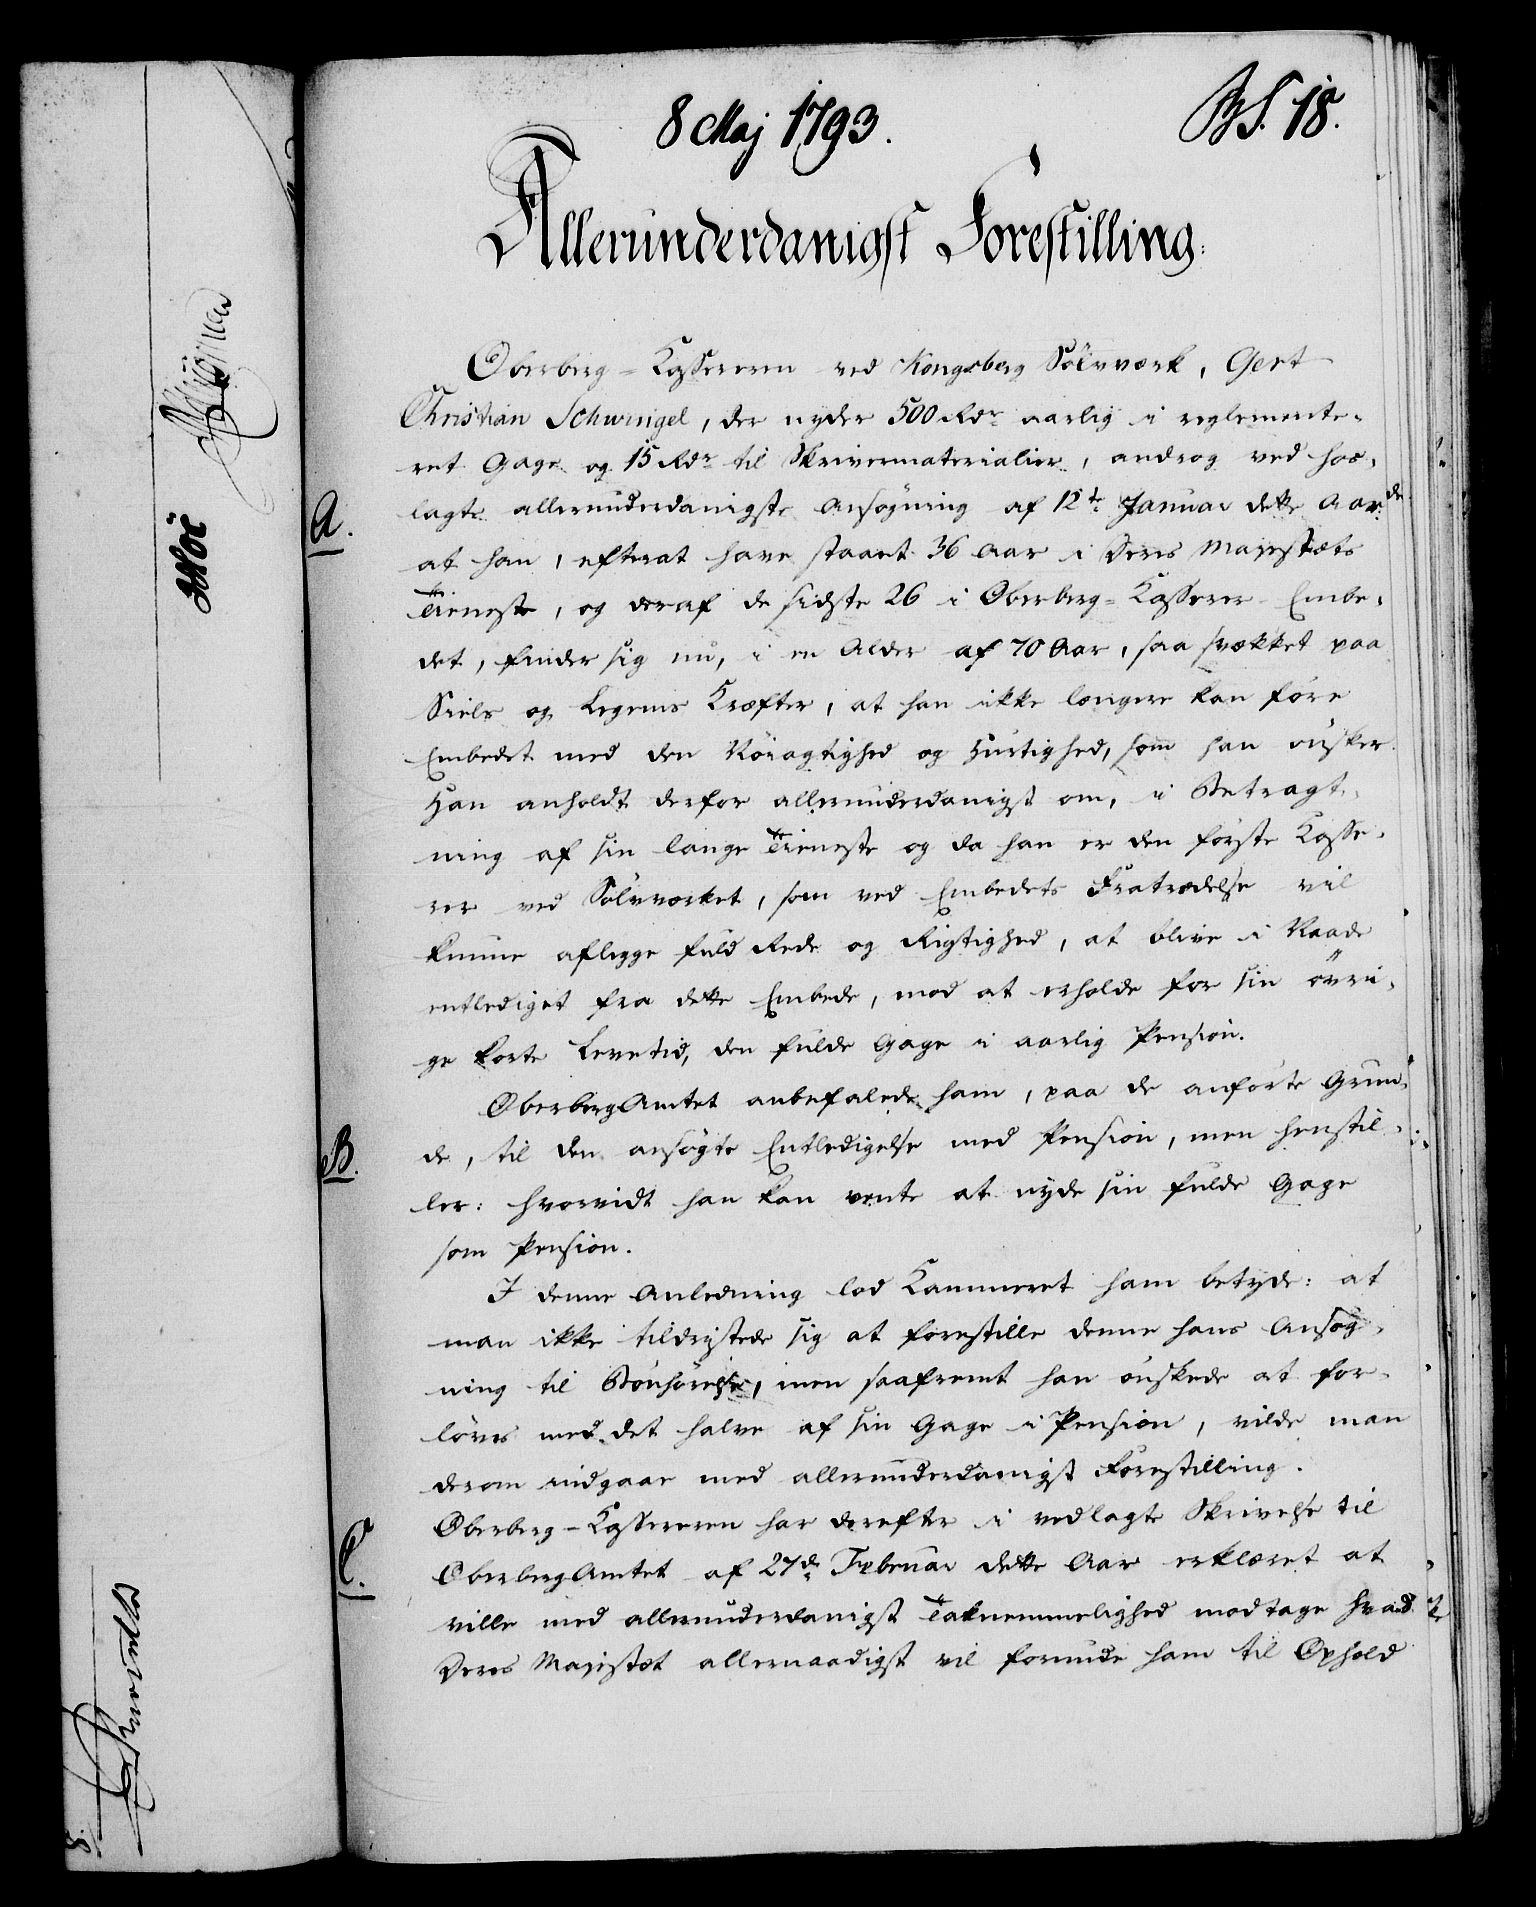 8 Maj 1793.
BS. 18.
Allerunderdanigst Forestilling.
Oberberg-Kassereren ved Kongsberg Sölvværk, Gert
Christian Schwingel, der nyder 500 Rdr aarlig i reglemente-
ret Gage og 15 Rdr til Skrivermaterialier, androg ved hos-
A.
lagte allerunderdanigste Ansøgning af 12te Januar dette Aar:
at han, efterat have staaet 36 Aar i Deres Majestæts
Tieneste, og deraf de sidste 26 i Oberberg-Kasserer-Embe-
det, finder sig nu, i en Alder af 70 Aar, saa svækket paa
Siels og Legems Kræfter, at han ikke længere kan före
Embedet med den Nöiagtighed og Hurtighed, som han önsker.
Han anholdt derfor allerunderdanigst om, i Betragt-
ning af sin lange Tieneste og da han er den förste Kasse-
rer ved Sölvværket, som ved Embedets Fratrædelse vil
kunne aflegge fuld Rede og Rigtighed, at blive i Naade
entlediget fra dette Embede, mod at erholde for sin övri-
ge korte Levetid, den fulde Gage i aarlig Pension.
OberbergAmtet anbefalede ham, paa de anförte Grun-
B.
de, til den ansögte Entledigelse med Pension, men henstil-
ler: hvorvidt han kan vente at nyde sin fulde Gage
som Pension.
I denne Anledning lod Kammeret ham betyde: at
man ikke tildristede sig at forestille denne hans Ansög-
ning til Bönhörelse, men saafremt han önskede at for-
löves med det halve af sin Gage i Pension, vilde man
derom indgaae med allerunderdanigst Forestilling.
Oberberg-Kassereren har derefter i vedlagte Skrivelse til
C.
OberbergAmtet af 27de Februar dette Aar erklæret at
ville med allerunderdanigst Taknemmelighed modtage hvad
Deres Majestæt allernaadigst vil forunde ham til Ophold